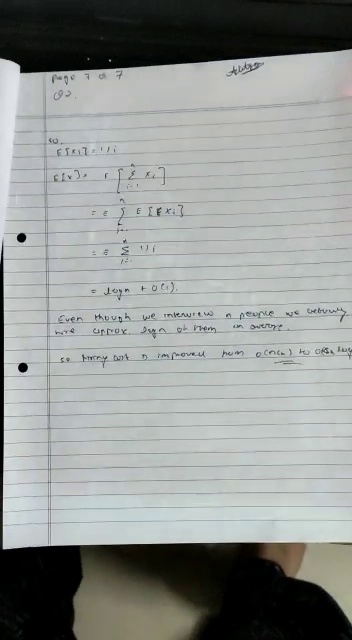 Page 7 of 7
Q2.
so,
E[xi] = 1/i
E[x] = E [ n Σ i=1 xi ]
= E n Σ i=1 E[Exi]
= E n Σ i=1 1/i
= logn + O(1).
Even though we interview n people we actually
hire approx logn of them on average.
so hiring cost is improved from O(nCh) to